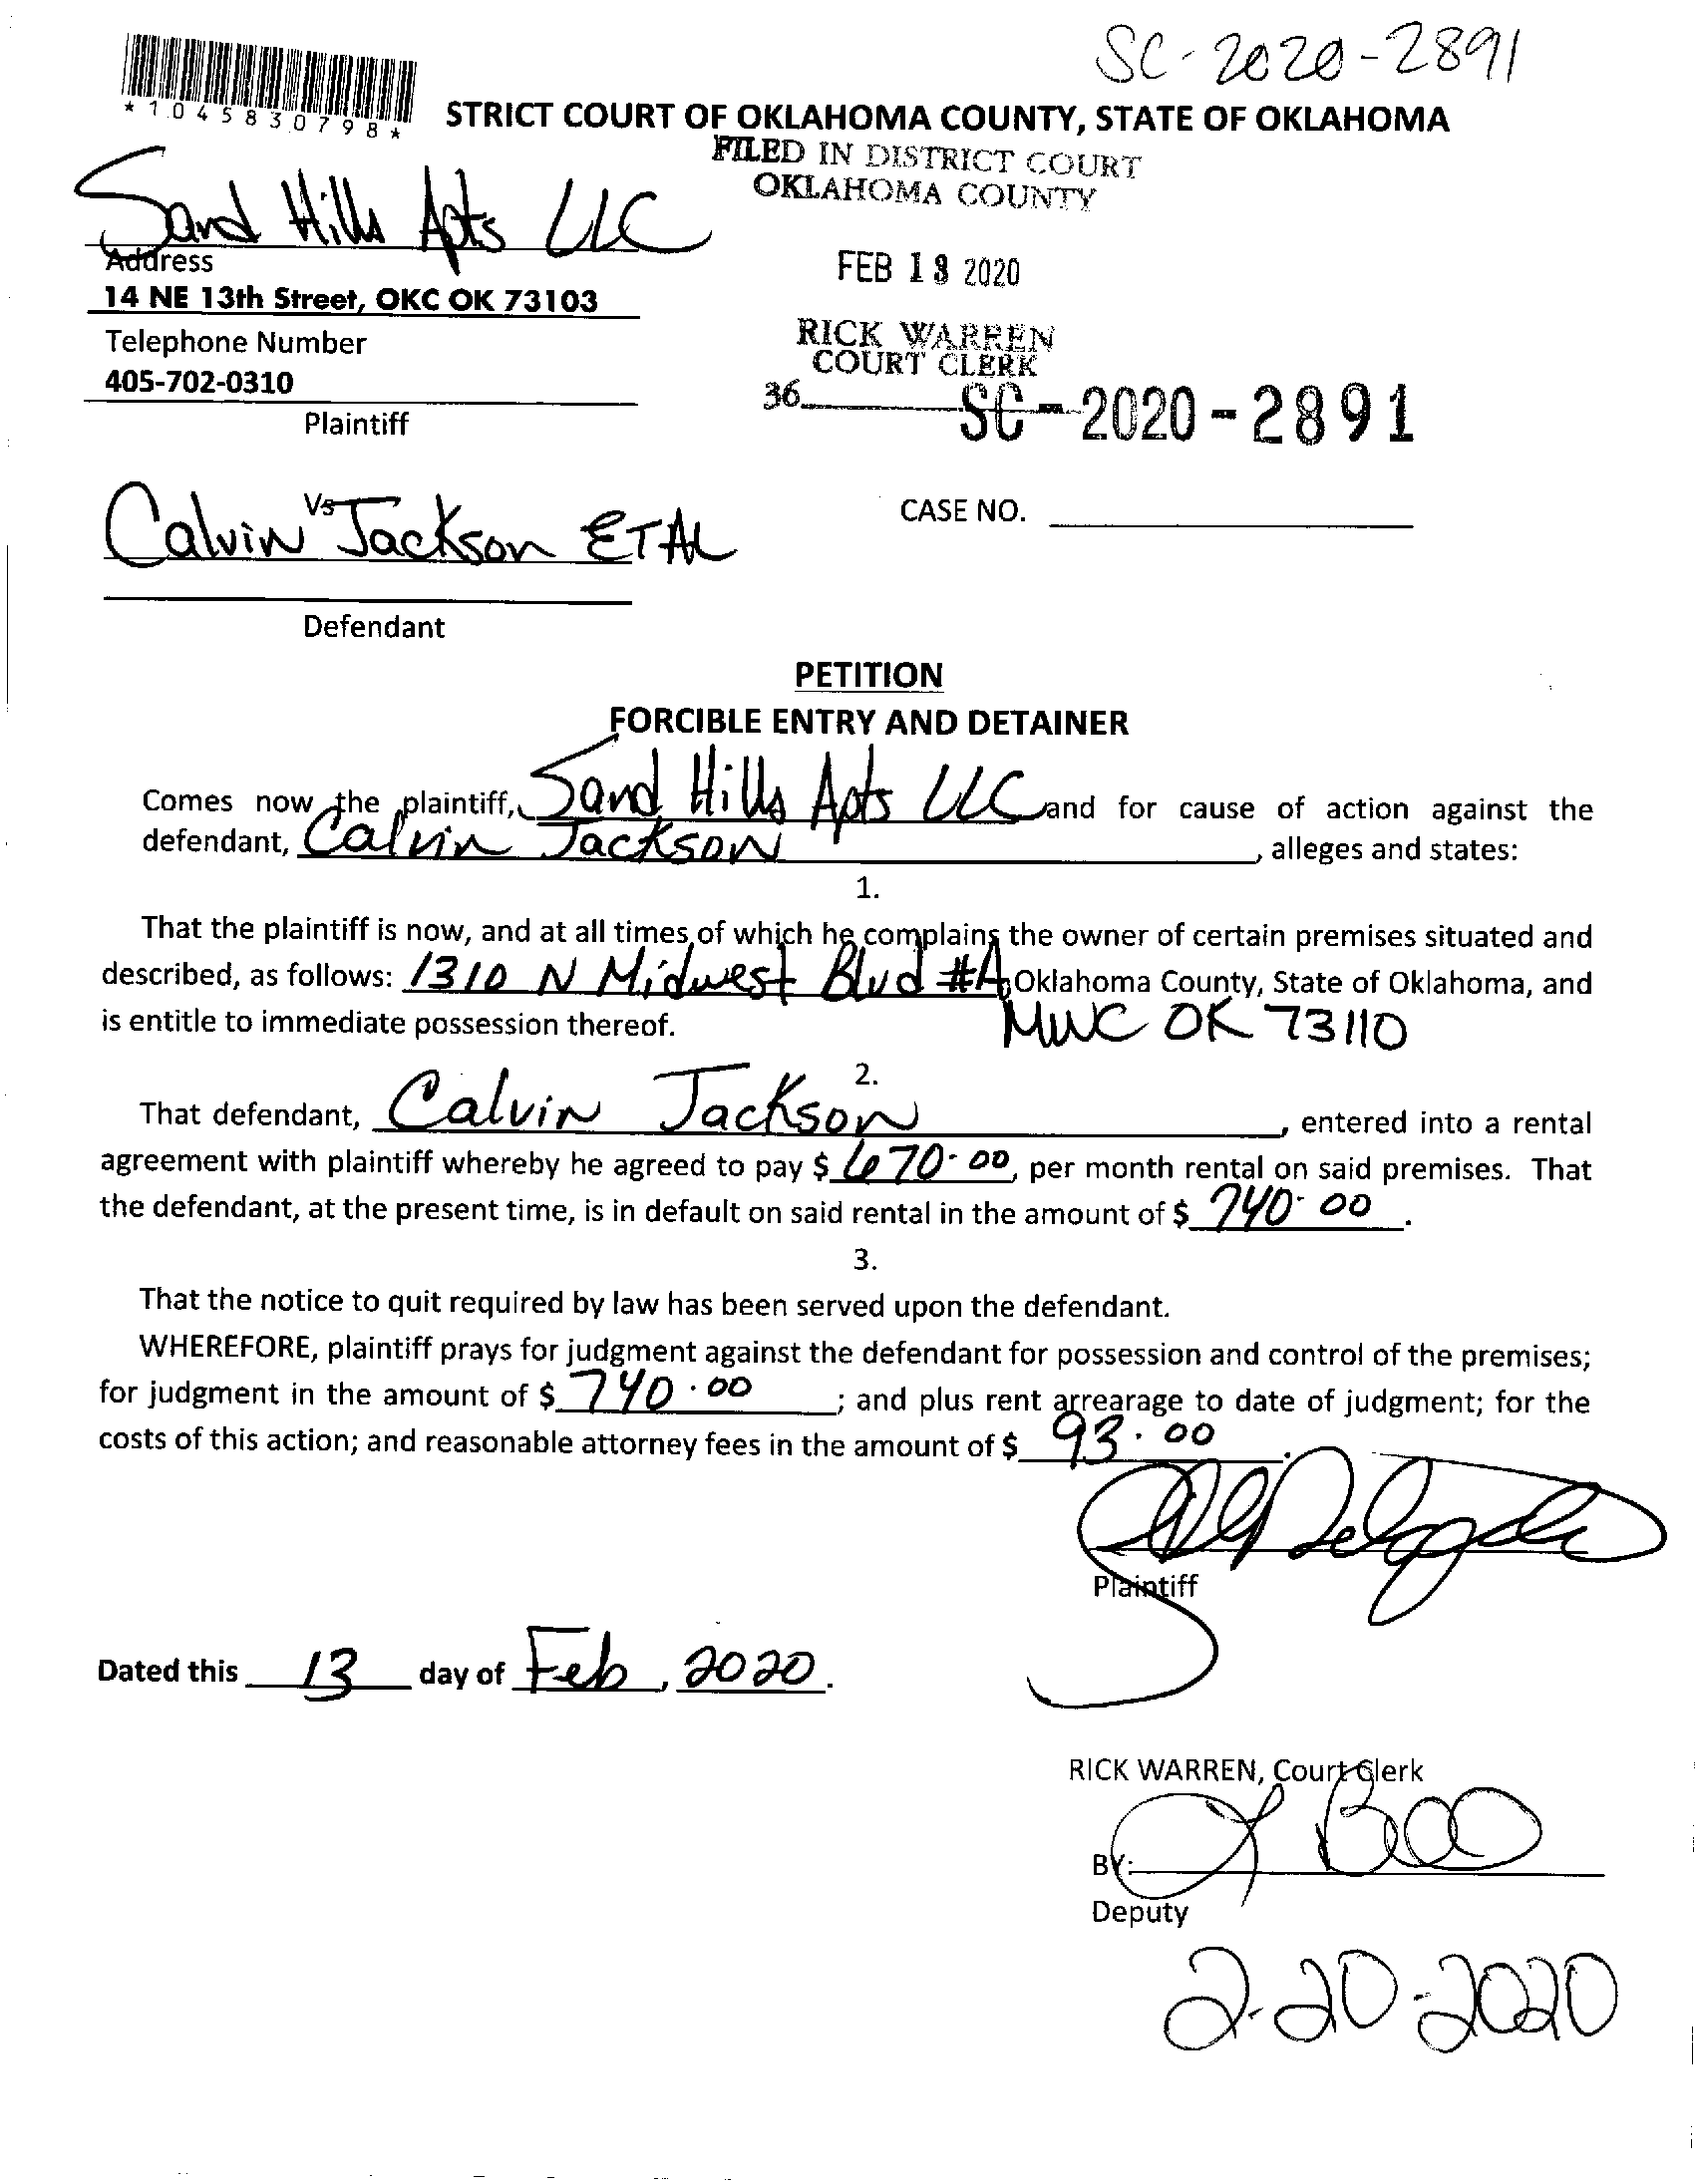 SC-2020-2891
*1045830798*
STRICT COURT OF OKLAHOMA COUNTY, STATE OF OKLAHOMA
FILED IN DISTRICT COURT
OKLAHOMA COUNTY
Sand Hills Apts LLC
Address
14 NE 13th Street, OKC OK 73103
FEB 13 2020
Telephone Number
405-702-0310
RICK WARREN
COURT CLERK
36
SC-2020-2891
Plaintiff
Vs
CASE NO.
Calvin Jackson ETAL
Defendant
PETITION
FORCIBLE ENTRY AND DETAINER
Comes now the plaintiff, Sand Hills Apts LLC and for cause of action against the
defendant, Calvin Jackson, alleges and states:
1.
That the plaintiff is now, and at all times of which he complains the owner of certain premises situated and
described, as follows: 1310 N Midwest Blvd #A, Oklahoma County, State of Oklahoma, and
is entitle to immediate possession thereof. MWC OK 73110
2.
That defendant, Calvin Jackson, entered into a rental
agreement with plaintiff whereby he agreed to pay $ 670.00, per month rental on said premises. That
the defendant, at the present time, is in default on said rental in the amount of $ 740.00.
3.
That the notice to quit required by law has been served upon the defendant.
WHEREFORE, plaintiff prays for judgment against the defendant for possession and control of the premises;
for judgment in the amount of $ 740.00; and plus rent arrearage to date of judgment; for the
costs of this action; and reasonable attorney fees in the amount of $ 93.00.
Plaintiff
Dated this 13 day of Feb, 2020.
RICK WARREN, Court Clerk
BY:
Deputy
2-20-2020